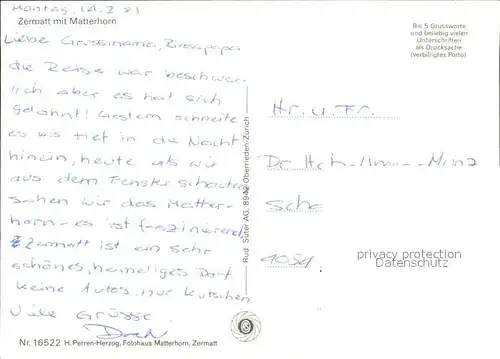 Montag, 14.2.83
Zermatt mit Matterhorn
Liebe Grossmama, Grosspapa
die Reise war beschwer-
lich aber es hat sich
gelohnt! Gestern schneite
es bis tief in die Nacht
hinein, heute als wir
aus dem Fenster schauten
sahen wir das Matter-
horn - es ist faszinierend
Zermatt ist ein sehr
schönes, heimeliges Dorf
keine Autos, nur Kutschen
Viele Grüsse
Nr. 16522 H. Perren-Herzog, Fotohaus Matterhorn, Zermatt
Rud. Suter AG, 8942 Oberrieden-Zürich
Bis 5 Grussworte
und beliebig vielen
Unterschriften
als Drucksache
(verbilligtes Porto)
Hr. u. Fr.
Dr
Sche
4054
privacy protection
Datenschutz